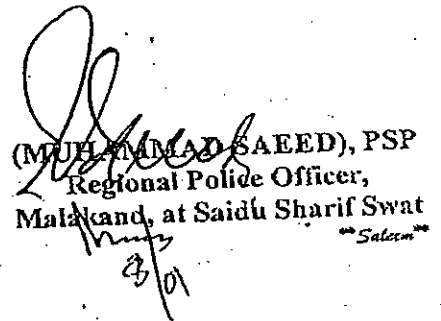 (MUHAMMAD SAEED), PSP
Regional Police Officer,
Malakand, at Saidu Sharif Swat
**Saleem**
/01